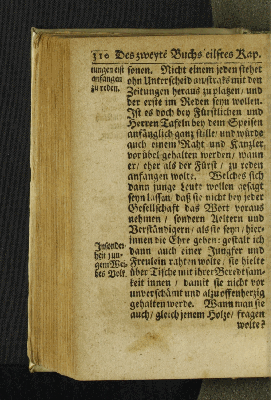 310 Des zweyte Buchs eilftes Kap.
sonen. Nicht einem jeden stehet
ohn Unterscheid an/straks mit den
Zeitungen heraus zu platzen/ und
der erste im Reden seyn wollen.
Ist es doch bey Fürstlichen und
Herren Tafeln bey dem Speisen
anfänglich ganz stille/ und würde
auch einem Raht und Kanzler
vor übel gehalten werden/ wann
er/ ehe als der Fürst/ zu reden
anfangen wolte. Welches sich
dann junge Leute wollen gesagt
seyn lassen/ daß sie nicht bey jeder
Gesellschaft das Wort voraus
nehmen/ sondern Aeltern und
Verständigern/ als sie seyn/ hier-
innen die Ehre geben: gestalt ich
dann auch einer Jungfer und
Freulein rahten wolte/ sie hielte
über Tische mit ihrer Beredtsam-
keit innen/ damit sie nicht vor
unverschämt und alzu offenherzig
gehalten werde. Wann man sie
auch/ gleich jenem Holze/ fragen
wolte?
tungen erst
anfangen
zu reden.
Insonder-
heit jun-
gem Wei-
bes Volk.